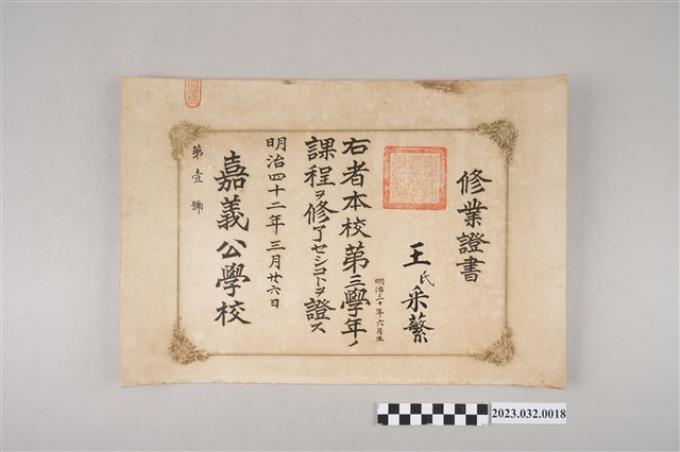 修業證書
王氏采蘩
明治三十年六月生
右者本校第三學年ノ
課程ヲ修了セシコトヲ證ス
明治四十二年三月廿六日
嘉義公學校
第壹號
2023.032.0018